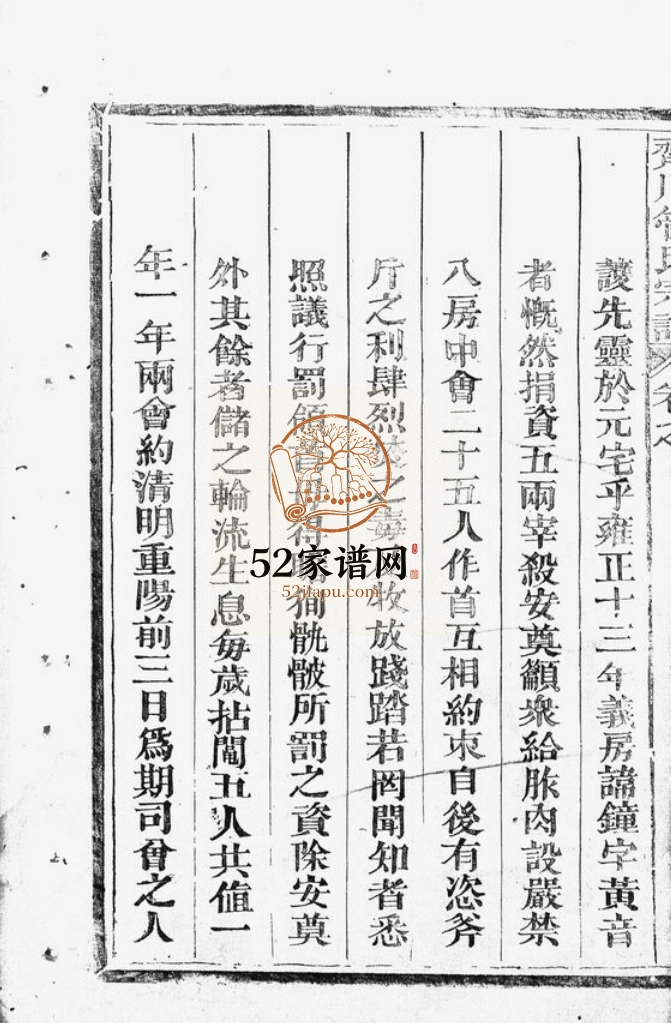 氏宗譜
護先靈於元宅乎雍正十三年義房諱鐘字黃音
者慨然捐資五兩宰殺安奠籲衆給胙肉設嚴禁
八房中會二十五人作首互相約束自後有恣斧
斤之利肆烈之毒牧放踐踏若罔聞知者悉
照議行罰得徇骫骳所罰之資除安奠
外其餘者儲之輪流生息每歲拈鬮五人共值一
年一年兩會約清明重陽前三日爲期司會之人
52家谱网
52jiapu.com